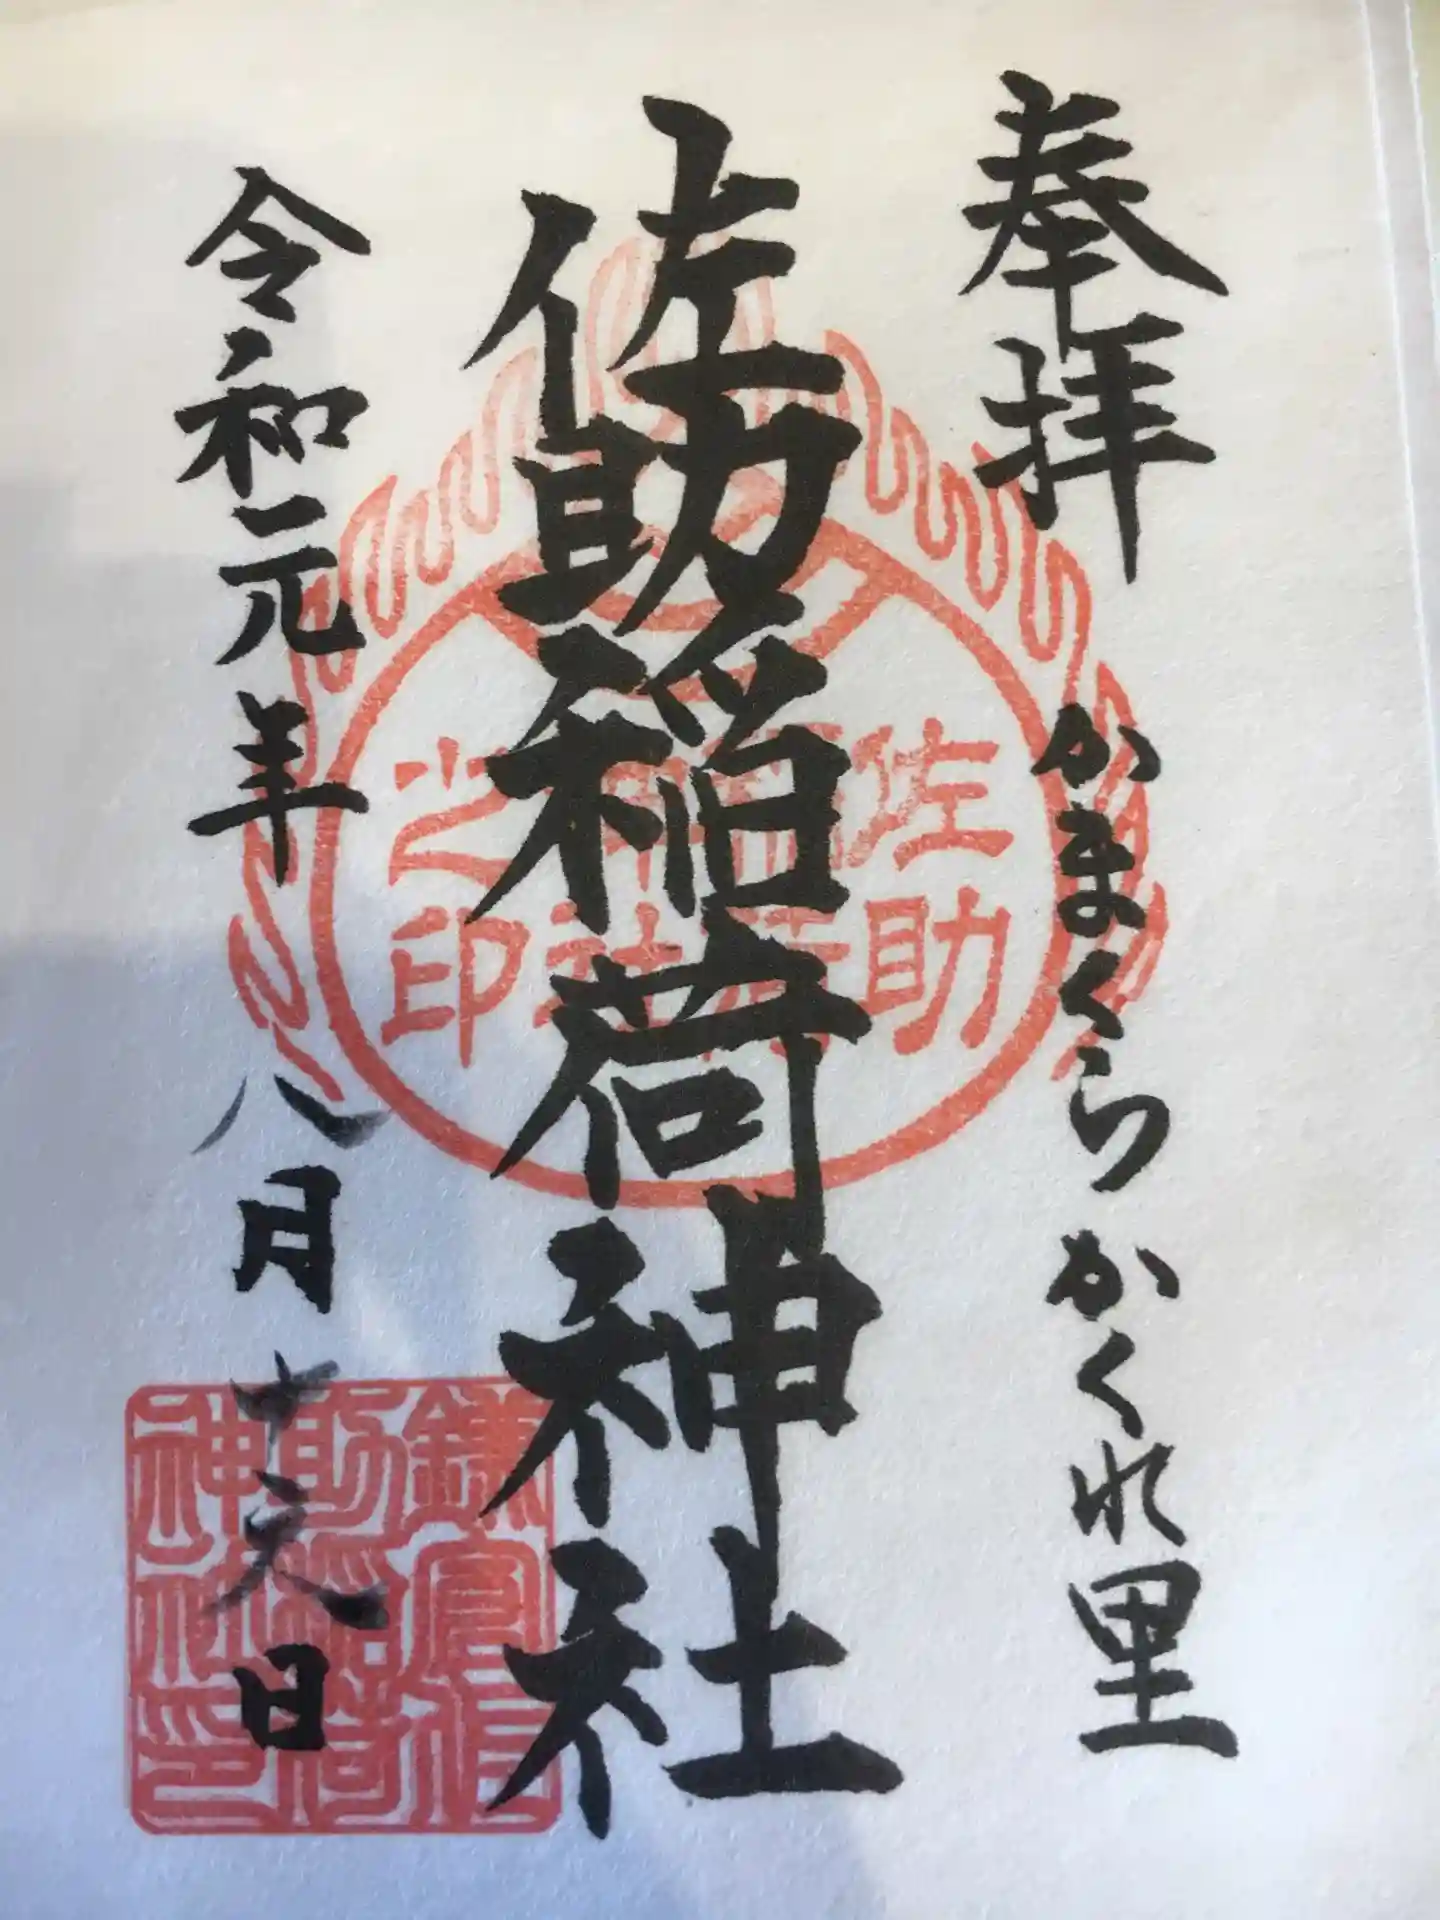 奉拝
かまくらかくれ里
佐助稲荷神社
令和元年八月十六日
佐助
稲荷
神社
之印
鎌倉佐
助稲荷
神社印